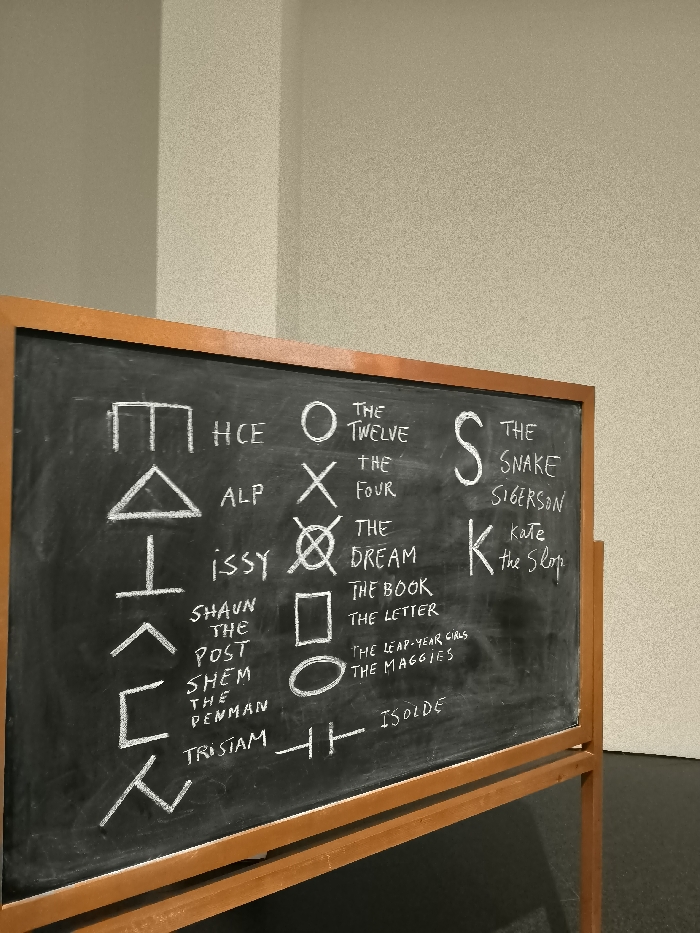 HCE
ALP
iSSY
SHAUN
THE
POST
SHEM
THE
PENMAN
TRISTAM
THE
TWELVE
THE
FOUR
THE
DREAM
THE BOOK
THE LETTER
THE LEAP-YEAR GIRLS
THE MAGGIES
ISOLDE
S THE
SNAKE
SIGERSON
K Kate
the Slop